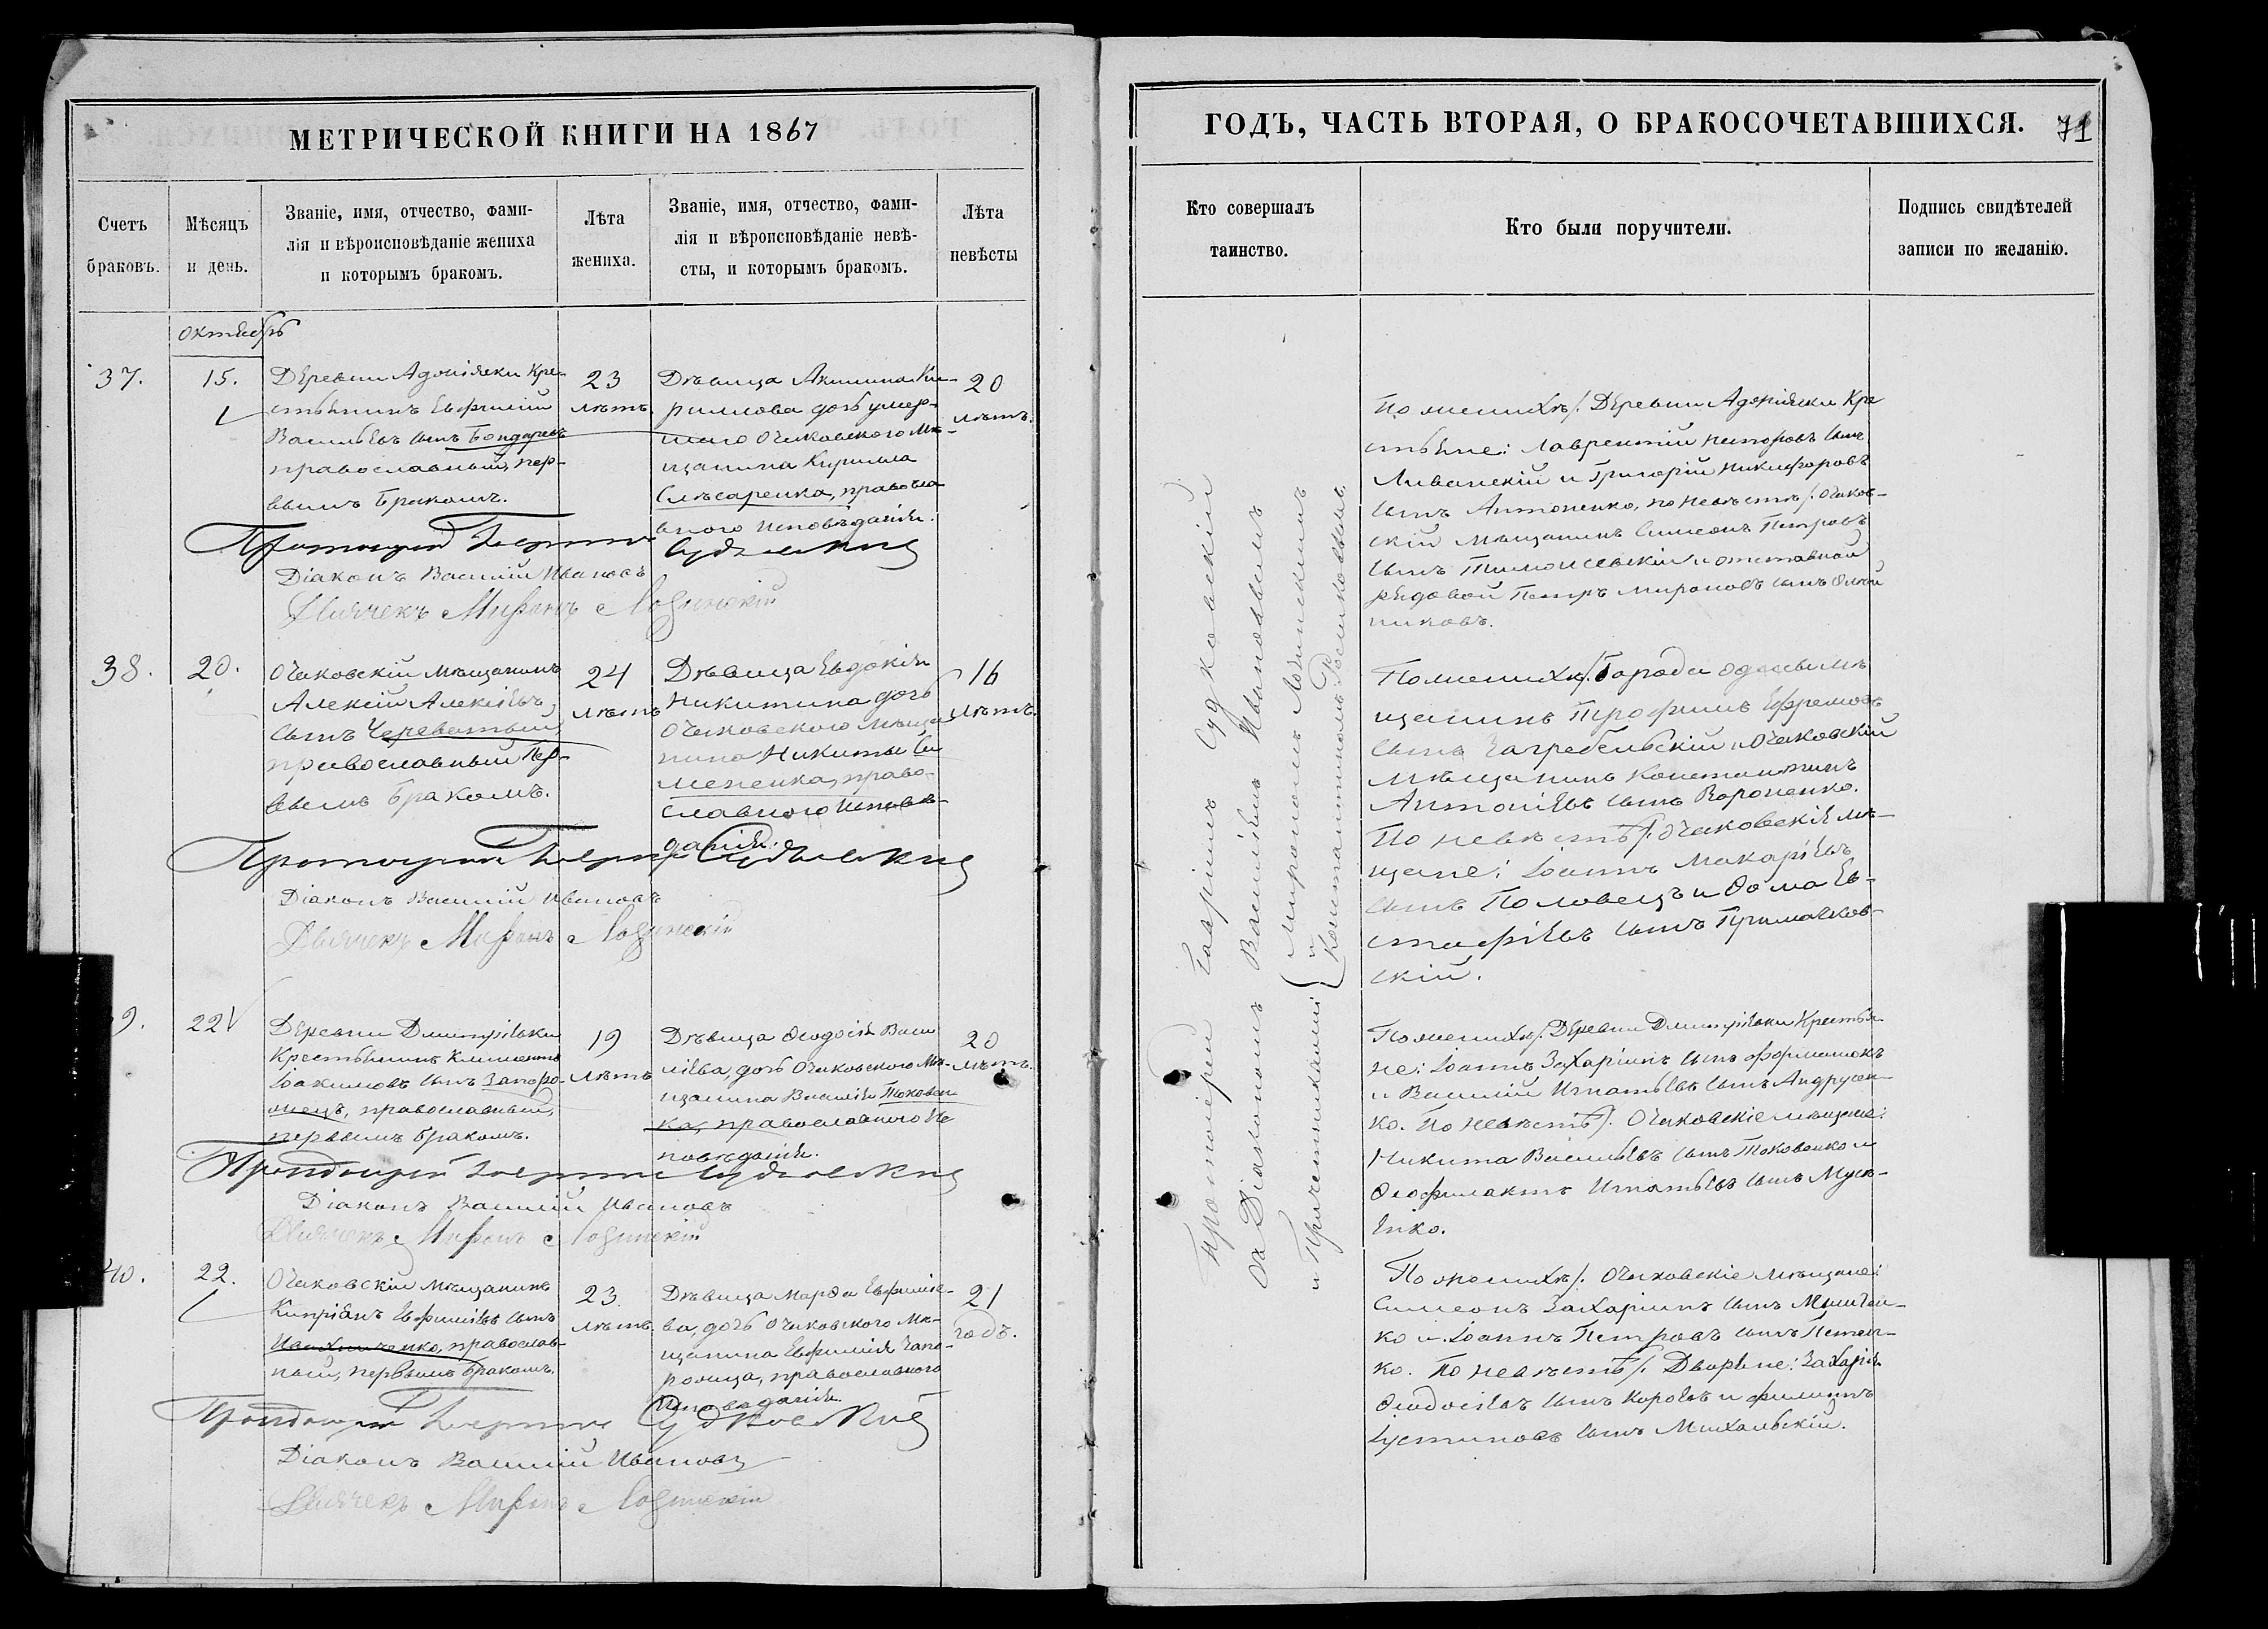 МЕТРИЧЕСКОЙ КНИГИ НА 1867
Счетъ
браковъ.
Мѣсяцъ
и день.
Званіе, имя, отчество, фами-
лія и вѣроисповѣданіе жениха
и которымъ бракомъ.
Лѣта
жениха.
Званіе, имя, отчество, фами-
лія и вѣроисповѣданіе невѣ-
сты, и которымъ бракомъ.
Лѣта
невѣсты
октябрь
37.
15.
Деревни Адопіяски Кре-
стьянинъ Евфимій
Васильевъ сынъ Бондаревъ
православный, пер-
вымъ бракомъ.
23
лѣтъ.
Дѣвица Акилина Ки-
риллова дочь умер-
шаго Очаковского Мѣ-
щанина Кирилла
Слѣсаренка, правосла
вного исповѣданія.
20
лѣтъ.
Протоіерей Гавріилъ Судковскій
Діаконъ Василій Ивановъ
Дьячекъ Миронъ Лобинскій
38.
20.
Очаковскій мѣщанинъ
Алексій Алексіевъ
сынъ Череватый,
православный пер-
вымъ бракомъ.
24
лѣтъ
Дѣвица Евдокія
Никитина дочь
Очаковского мѣща
нина Никиты Се
мененка, право-
славного исповѣ-
данія.
16
лѣтъ.
Протоіерей Гавріилъ Судковскій
Діаконъ Василій Ивановъ
Дьячекъ Миронъ Лобинскій
9.
22
Деревни Дмитріевки
Крестьянинъ Климентъ
Іоакимовъ сынъ Запоро-
жецъ, православный,
первымъ бракомъ.
19
лѣтъ
Дѣвица Ѳеодосія Васи
ліева, дочь Очаковского Мѣ-
щанина Василія Токовен
ка, православного Ис
повѣданія.
20
лѣтъ.
Протоіерей Гавріилъ Судковскій
Діаконъ Василій Ивановъ
Дьячекъ Миронъ Лобинскій
40.
22.
Очаковскій мѣщанинъ
Кипріянъ Евфиміевъ сынъ
православ-
ный, первымъ бракомъ.
23
лѣтъ.
Дѣвица Марѳа Евфиміе-
ва, дочь Очаковского Мѣ-
щанина Евфимія Запо-
рожца, православного
Исповѣданія.
21
годъ.
Протоіерей Гавріилъ Судковскій
Діаконъ Василій Ивановъ
Дьячекъ Миронъ Лобинскій
ГОДЪ, ЧАСТЬ ВТОРАЯ, О БРАКОСОЧЕТАВШИХСЯ.
71
Кто совершалъ
таинство.
Кто были поручители.
Подпись свидѣтелей
записи по желанію.
Протоіерей Гавріилъ Судковскій
съ Діакономъ Василіемъ Ивановымъ
и Причетниками Мирономъ Лобинскимъ
и
Константиномъ Росликовымъ
По женихѣ: Деревни Адопіяски Кре
стьяне: Лаврентій Несторовъ сынъ
Ливанскій и Григорій Никифоровъ
сынъ Антоненко, по невѣстѣ: Очаков-
скій мѣщанинъ Симеонъ Петровъ
сынъ Тимошевскій и отставной
рядовой Петръ Мироновъ сынъ
никовъ.
По женихѣ: Города Одессы мѣ
щанинъ Трофимъ Ефремовъ
сынъ Загребельскій и Очаковскій
мѣщанинъ Константинъ
Антоніевъ сынъ Вороненко.
По невѣстѣ: Очаковскія мѣ-
щане: Іоаннъ Макаріевъ
сынъ Половецъ и Ѳома Ев-
стафіевъ сынъ Грималков-
скій.
По женихѣ: Деревни Дмитріевки Крестья-
не: Іоаннъ Захаріинъ сынъ Форманюкъ
и Василій Игнатьевъ сынъ Андрусен-
ко. По невѣстѣ: Очаковскіе мѣщане:
Никита Васильевъ сынъ Токовенко и
Ѳеофилактъ Игнатьевъ сынъ Мусі-
енко.
По женихѣ: Очаковскіе мѣщане:
Симеонъ Захаріинъ сынъ
ко и Іоаннъ Петровъ сынъ Петен-
ко. По невѣстѣ: Дворяне: Захарія
Ѳеодосіевъ сынъ Королевъ и Филиппъ
Іустиновъ сынъ Михальскій.